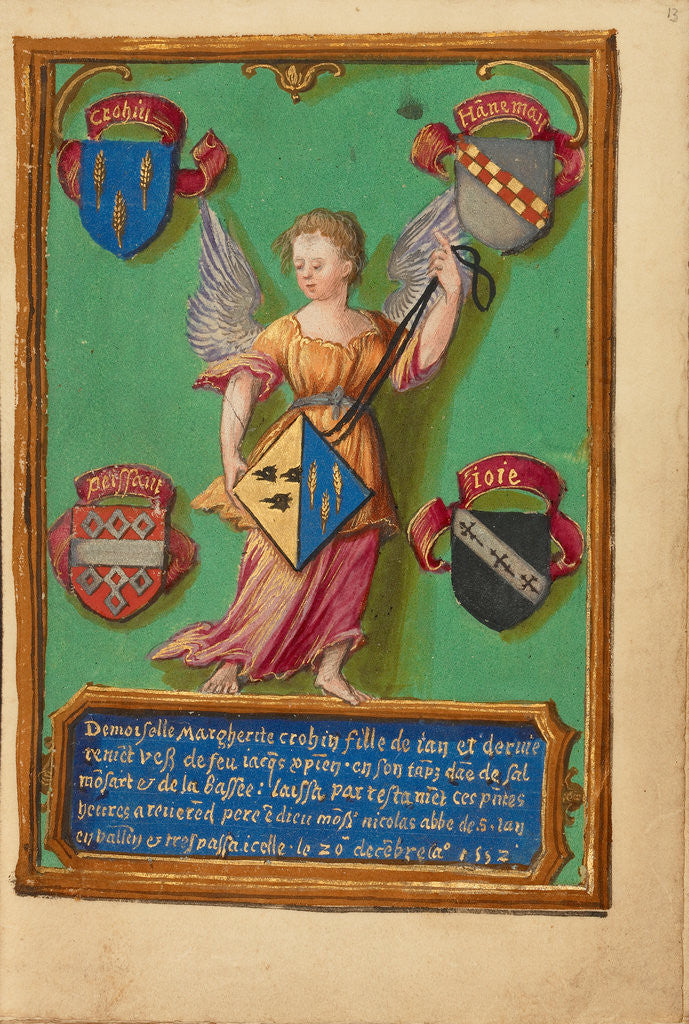 13
Crohin
Hãneman
perssant
ioie
Demoiselle Margherite crohin fille de ian et dernie
remẽt vefȝ de feu iacq̃s xp̃ien · en son tãps dãe de sal
mõsart & de la bassee : laissa par testamẽt ces pñtes
heures a reverẽd pere ẽ dieu mõsȝ nicolas abbe de S. Ian
en vallẽn & trespassa icelle · le 20 decẽbre la° 1552